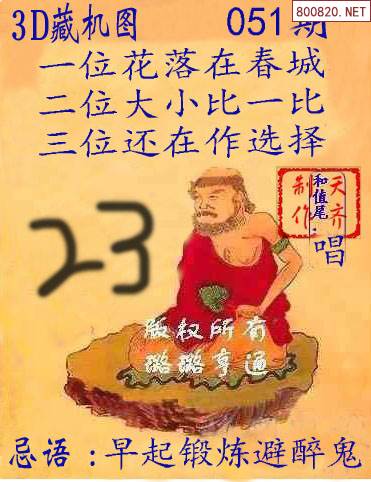 800820.NET
3D藏机图 051期
一位花落在春城
二位大小比一比
三位还在作选择
天齐
制作
和值尾:唱
23
版权所有
璐璐亨通
忌语:早起锻炼避醉鬼